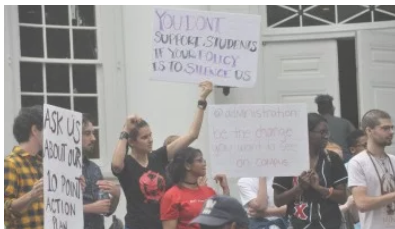 YOU DONT
SUPPORT STUDENTS
IF YOUR POLICY
IS TO SILENCE US
ASK US
ABOUT OUR
10 POINT
ACTION
PLAN
@administration:
be the change
you want to see
on campus